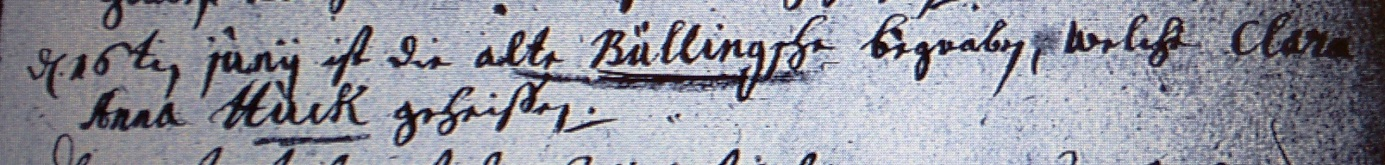 d. 16ten junÿ ist die alte Büllingsche begraben, welche Clara
Anna Huck geheißen.